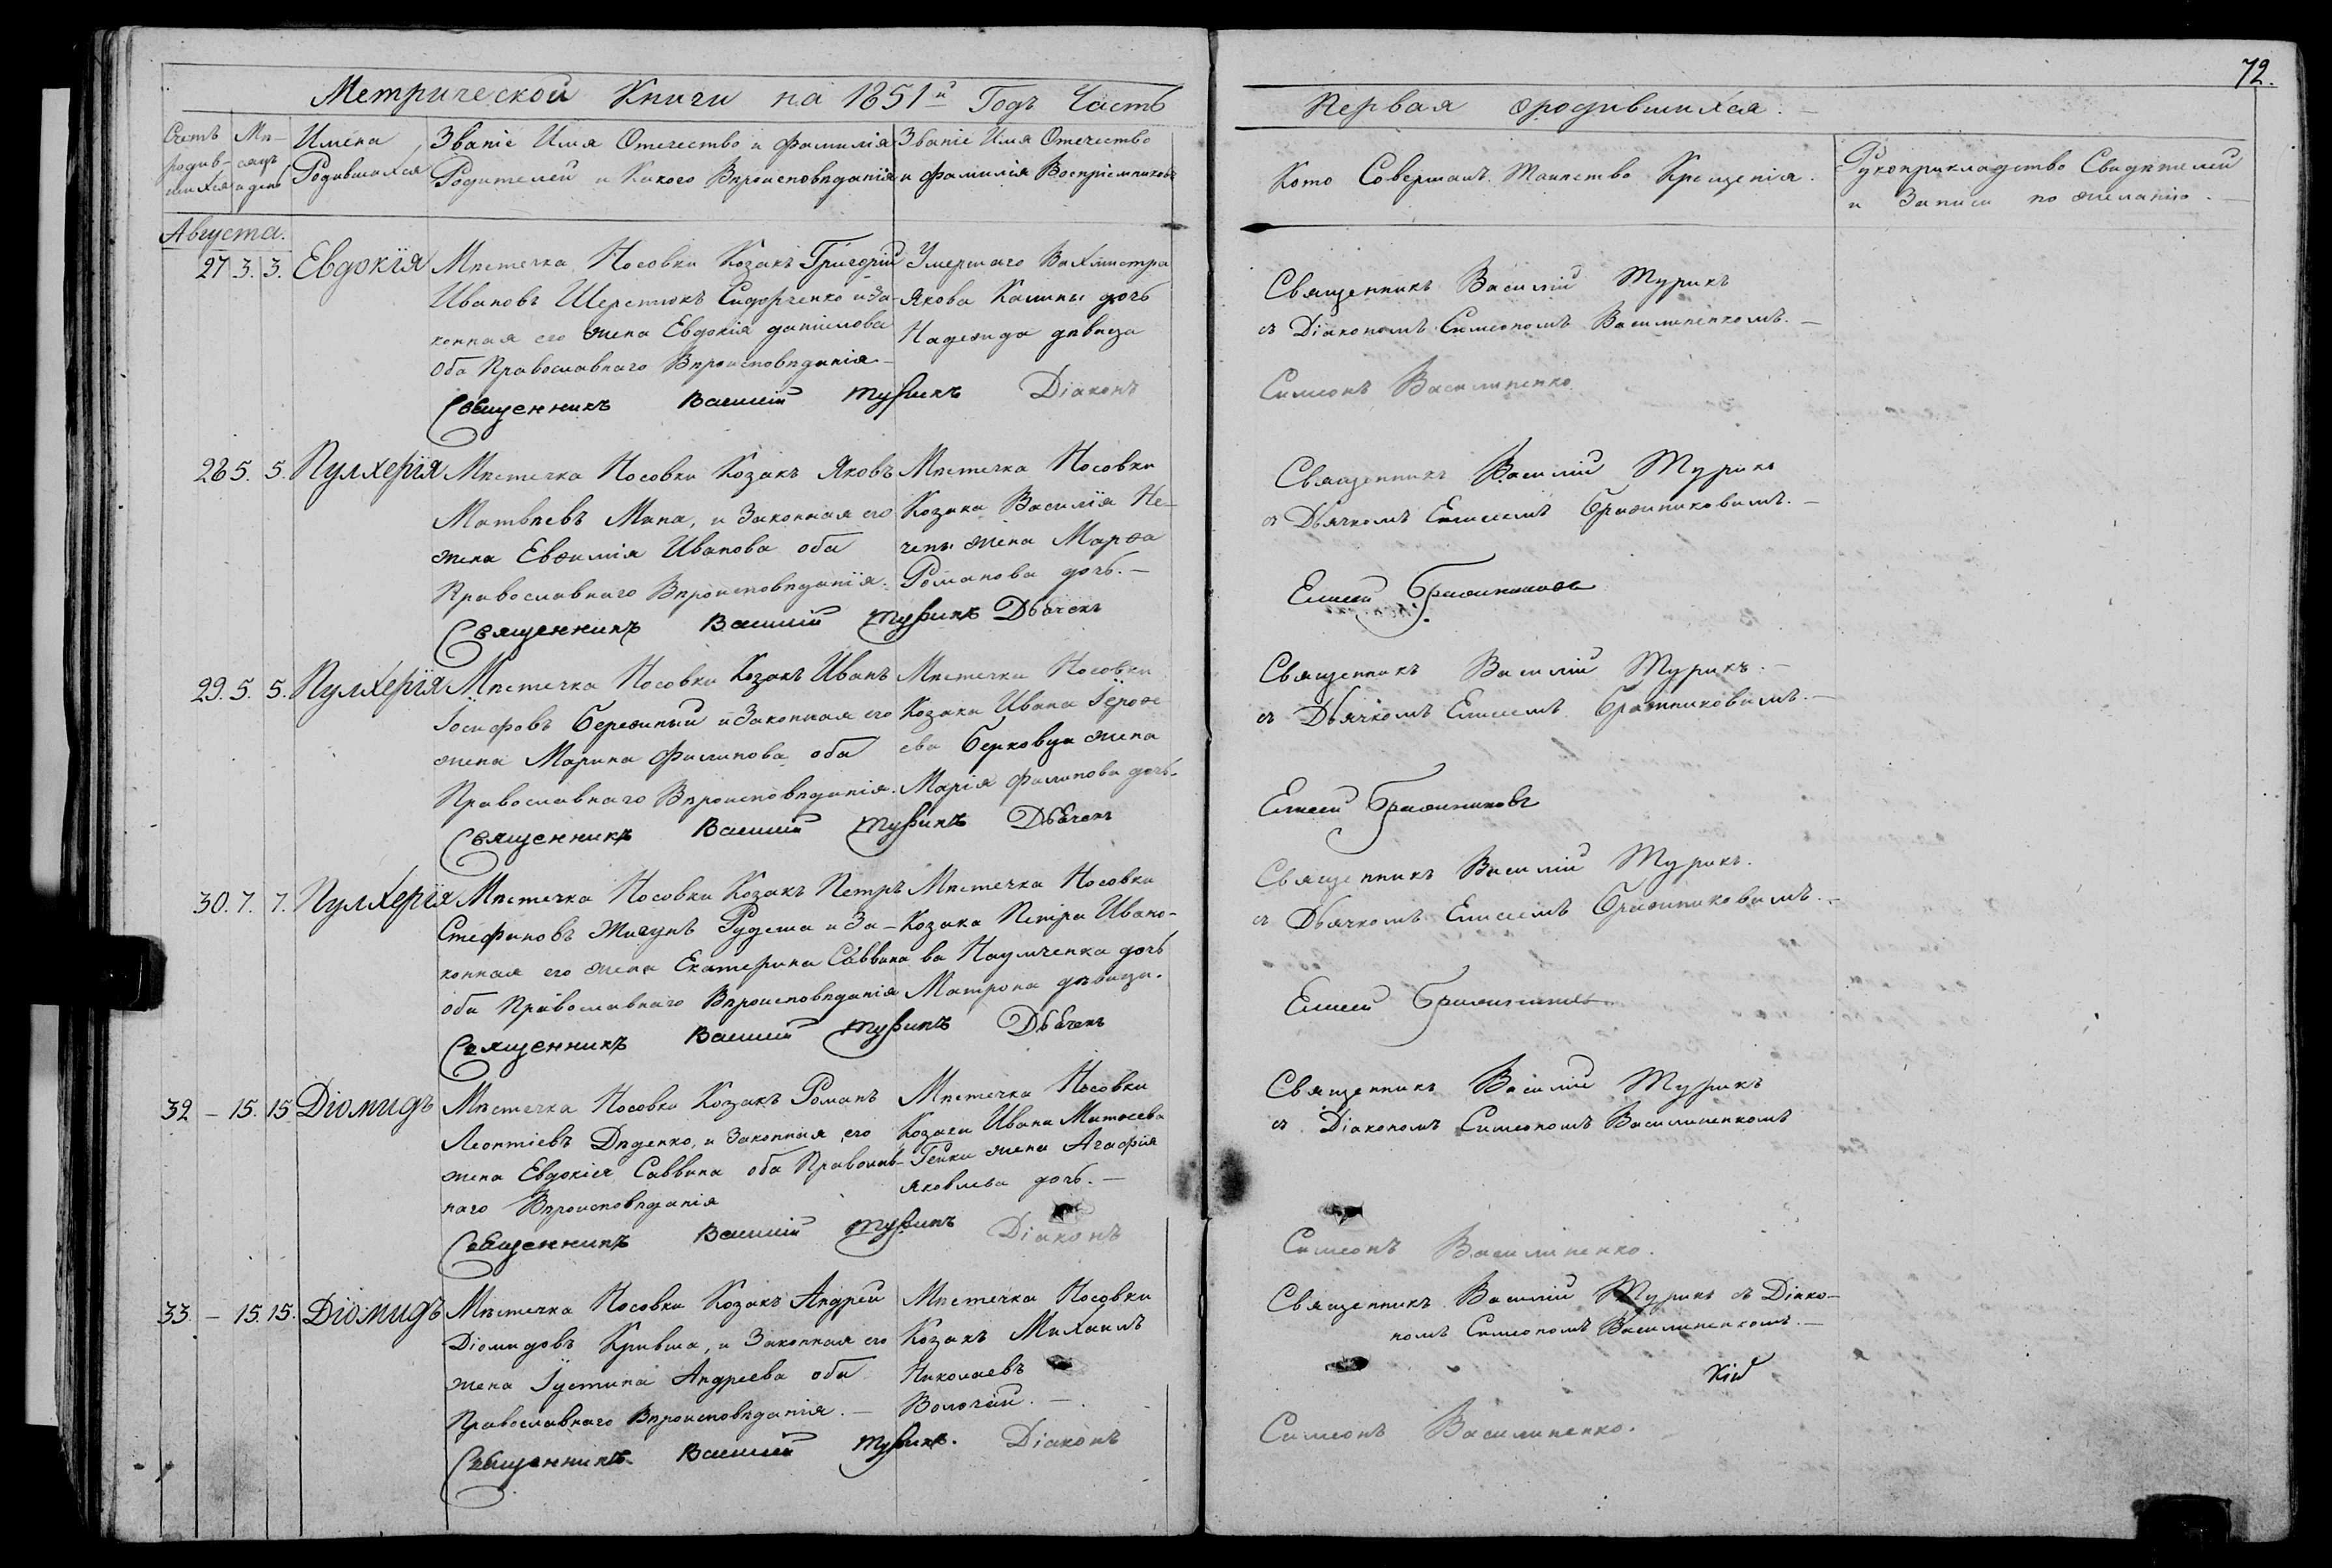 72.
Метрической Книги на 1851й Годъ Часть
Первая ородившихся. —
Счетъ родив-шихся
Мѣ-сяцъ и день
Имена Родившихся
Званіе Имя Отечество и фамилія Родителей и Какого Вѣроисповѣданія
Званіе Имя Отечество и фамилія Воспріемниковъ
Кто Совершалъ Таинство Крещенія.
Рукоприкладство Свидѣтелей и Записи по желанію. —
Августа.
27 3. 3. Евдокія
Мѣстечка Носовки Козакъ Григорій
Ивановъ Шерстюкъ Сидорченко и За-
конная его жена Евдокія даніилова
Оба Православнаго Вѣроисповѣданія —
Умершаго Вахмистра
Якова Калины дочь
Надежида дѣвица
Священникъ Василій Турикъ
съ Діакономъ Симеономъ Василипенкомъ. —
Священникъ Василій Турикъ Діаконъ
Симеонъ Василипенко
28 5. 5. Пулхерія
Мѣстечка Носовки Козакъ Яковъ
Матвѣевъ Мана, и Законная его
жена Евѳимія Иванова оба
Православнаго Вѣроисповѣданія.
Мѣстечка Носовки
Козака Василія Не-
чепы жена Марѳа
Романова дочь. —
Священникъ Василій Турикъ
съ Дьячкомъ Елисеемъ Бражниковымъ. —
Священникъ Василій Турикъ Дьячекъ
Елисей Бражниковъ
29. 5. 5. Пулхерія
Мѣстечка Носовки Козакъ Иванъ
Іосифовъ Бережный и Законная его
жена Марина Филипова оба
Православнаго Вѣроисповѣданія.
Мѣстечка Носовки
Козака Ивана Іероѳ
ева Берковца жена
Марія Филипова дочь.
Священникъ Василій Турикъ. —
съ Дьячкомъ Елисеемъ Бражниковымъ. —
Священникъ Василій Турикъ Дьячекъ
Елисей Бражниковъ
30. 7. 7. Пулхерія
Мѣстечка Носовки Козакъ Петръ
Стефановъ Жигунъ Рудеша и За-
конная его жена Екатерина Саввина
оба Православнаго Вѣроисповѣданія
Мѣстечка Носовки
Козака Петра Ивано-
ва Наумченка дочь
Матрона дѣвица.
Священникъ Василій Турикъ.
съ Дьячкомъ Елисеемъ Бражниковымъ. —
Священникъ Василій Турикъ Дьячекъ
Елисей Бражниковъ
32 — 15. 15 Діомидъ
Мѣстечка Носовки Козакъ Романъ
Леонтіевъ Дѣденко, и Законная его
жена Евдокія Саввина оба Православ-
наго Вѣроисповѣданія
Мѣстечка Носовки
Козака Ивана Матѳеева
Гейки жена Агафія
Яковлева дочь. —
Священникъ Василій Турикъ
съ Діакономъ Симеономъ Василипенкомъ
Священникъ Василій Турикъ Діаконъ
Симеонъ Василипенко.
33. — 15. 15. Діомидъ
Мѣстечка Носовки Козакъ Андрей
Діомидовъ Кривша, и Законная его
жена Іустина Андреева оба
Православнаго Вѣроисповѣданія. —
Мѣстечка Носовки
Козакъ Михаилъ
Николаевъ
Волочай. —
Священникъ Василій Турикъ съ Діако-
номъ Симеономъ Василипенкомъ. —
Священникъ Василій Турикъ. Діаконъ
Симеонъ Василипенко.